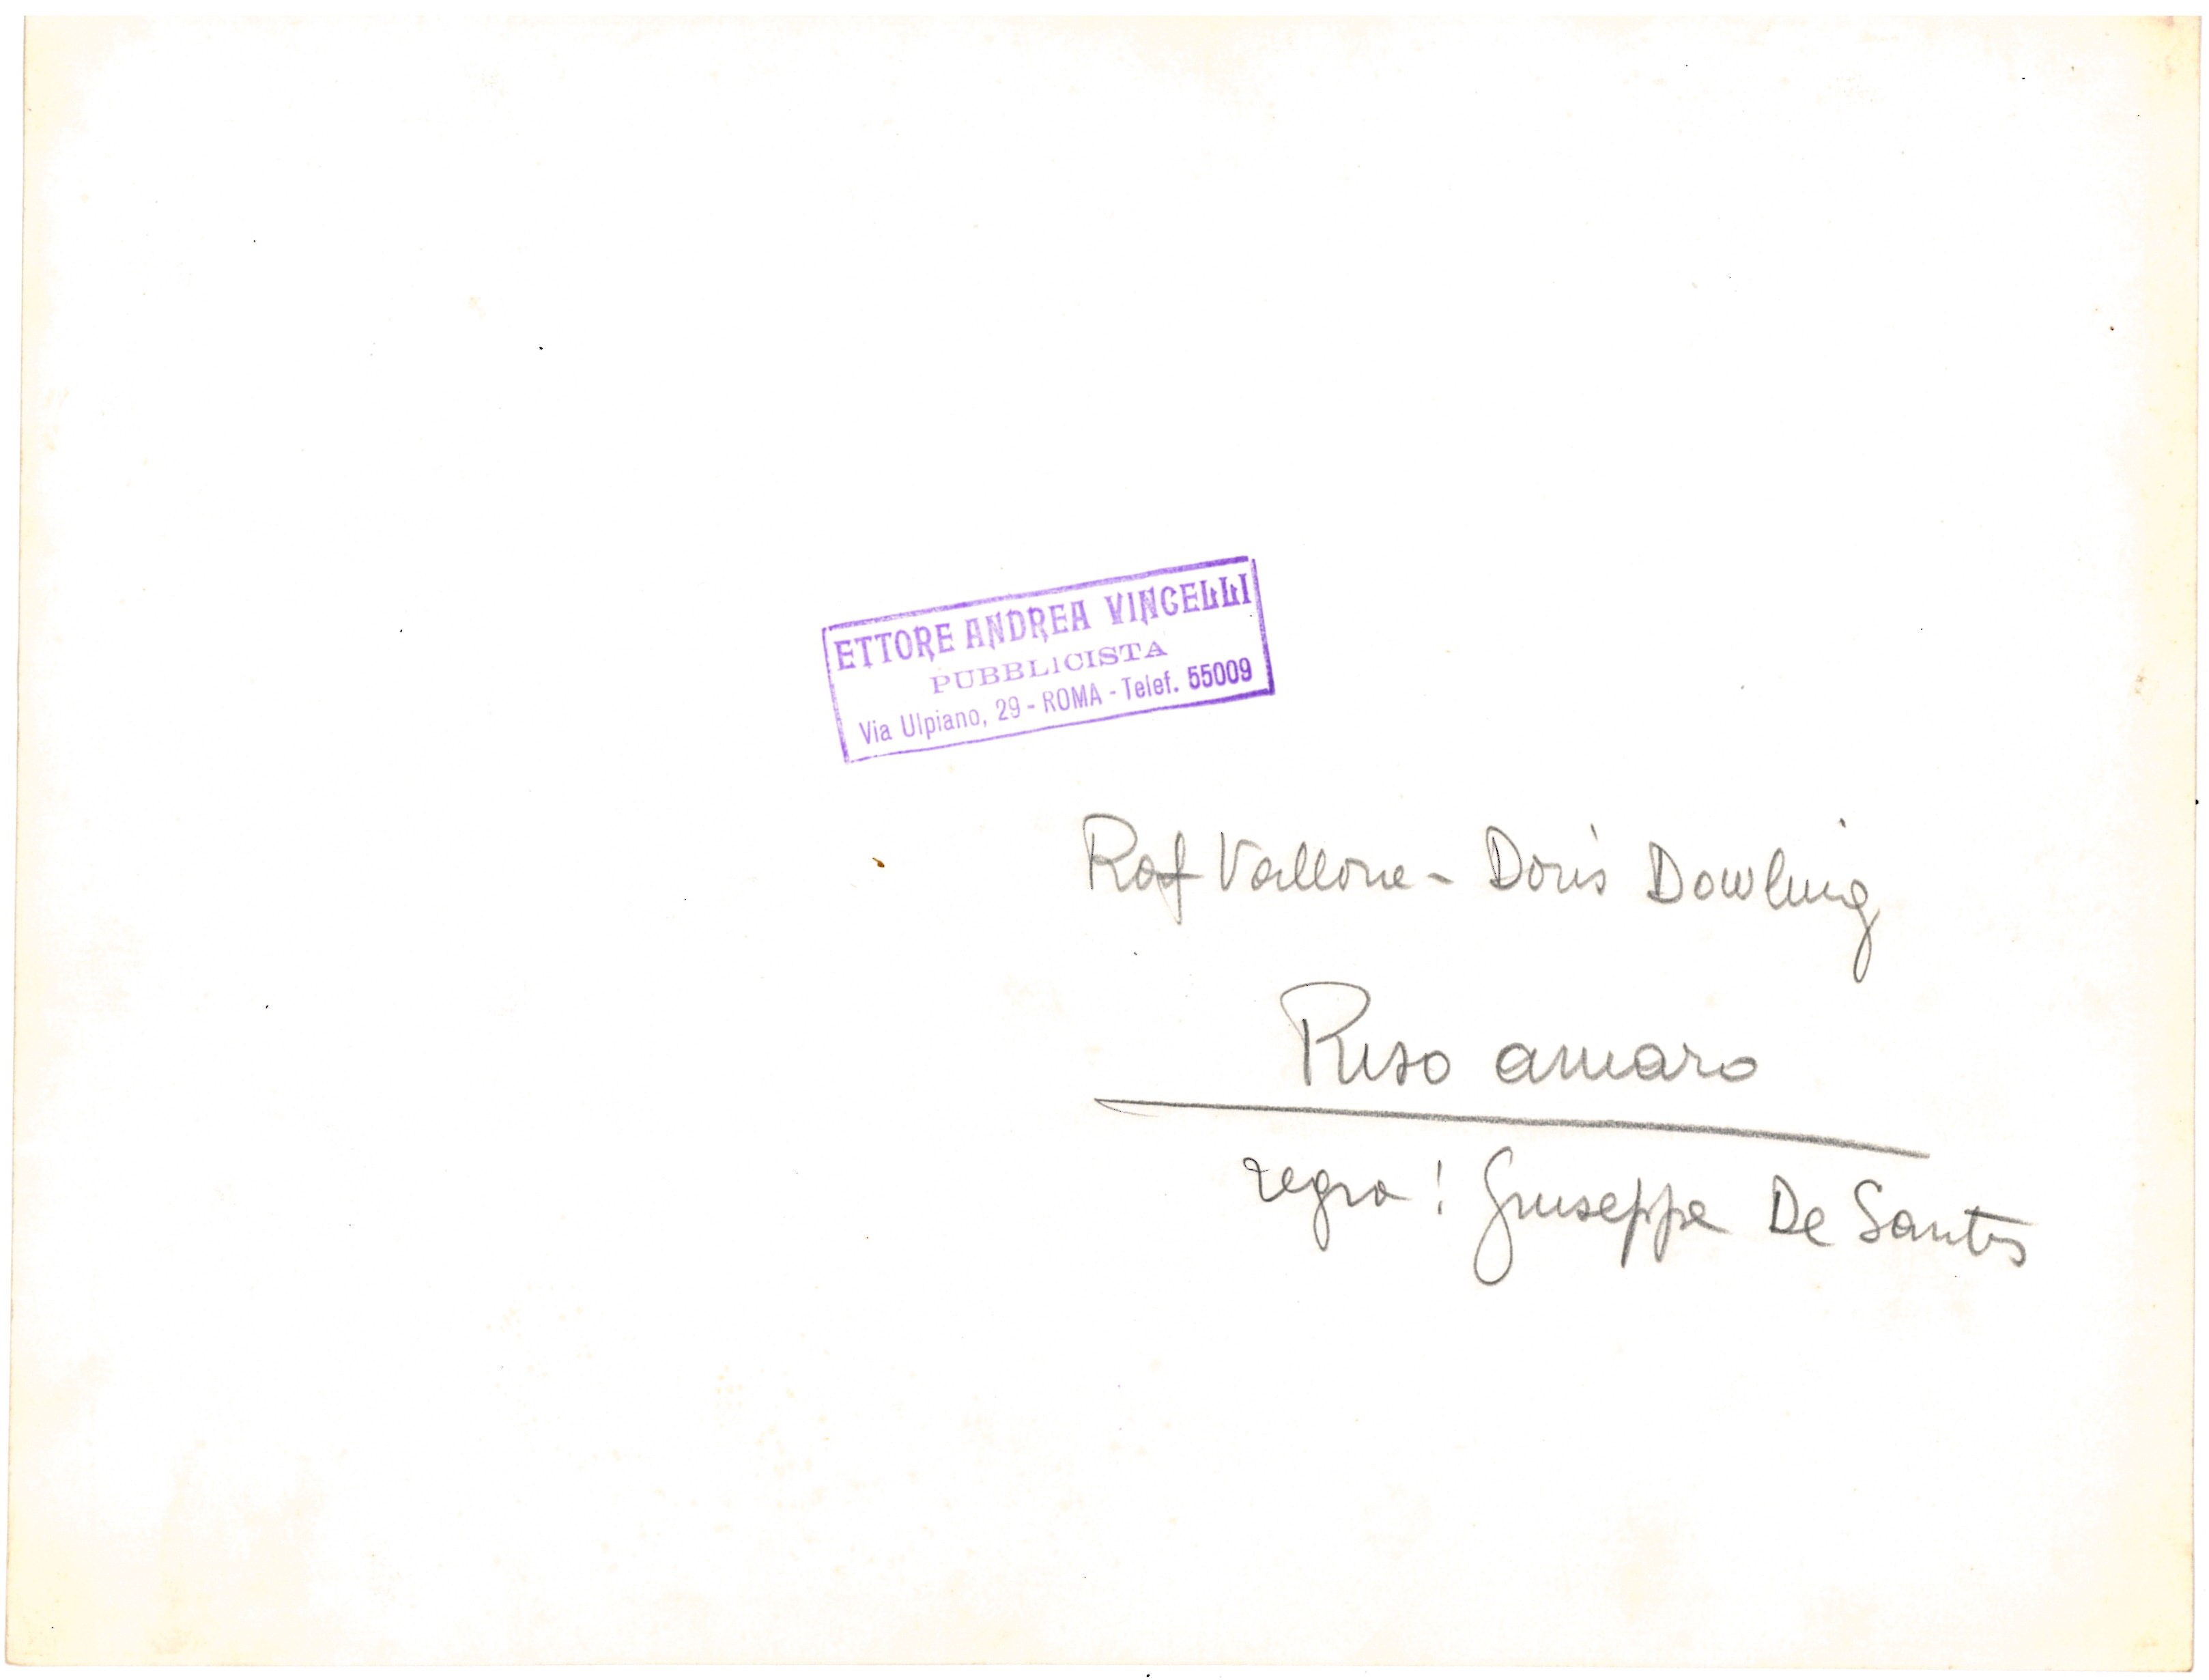 ETTORE ANDREA VINCELLI
PUBBLICISTA
Via Ulpiano, 29 - ROMA - Telef. 55009
Raf Vallone - Doris Dowling
Riso amaro
regia: Giuseppe De Santis